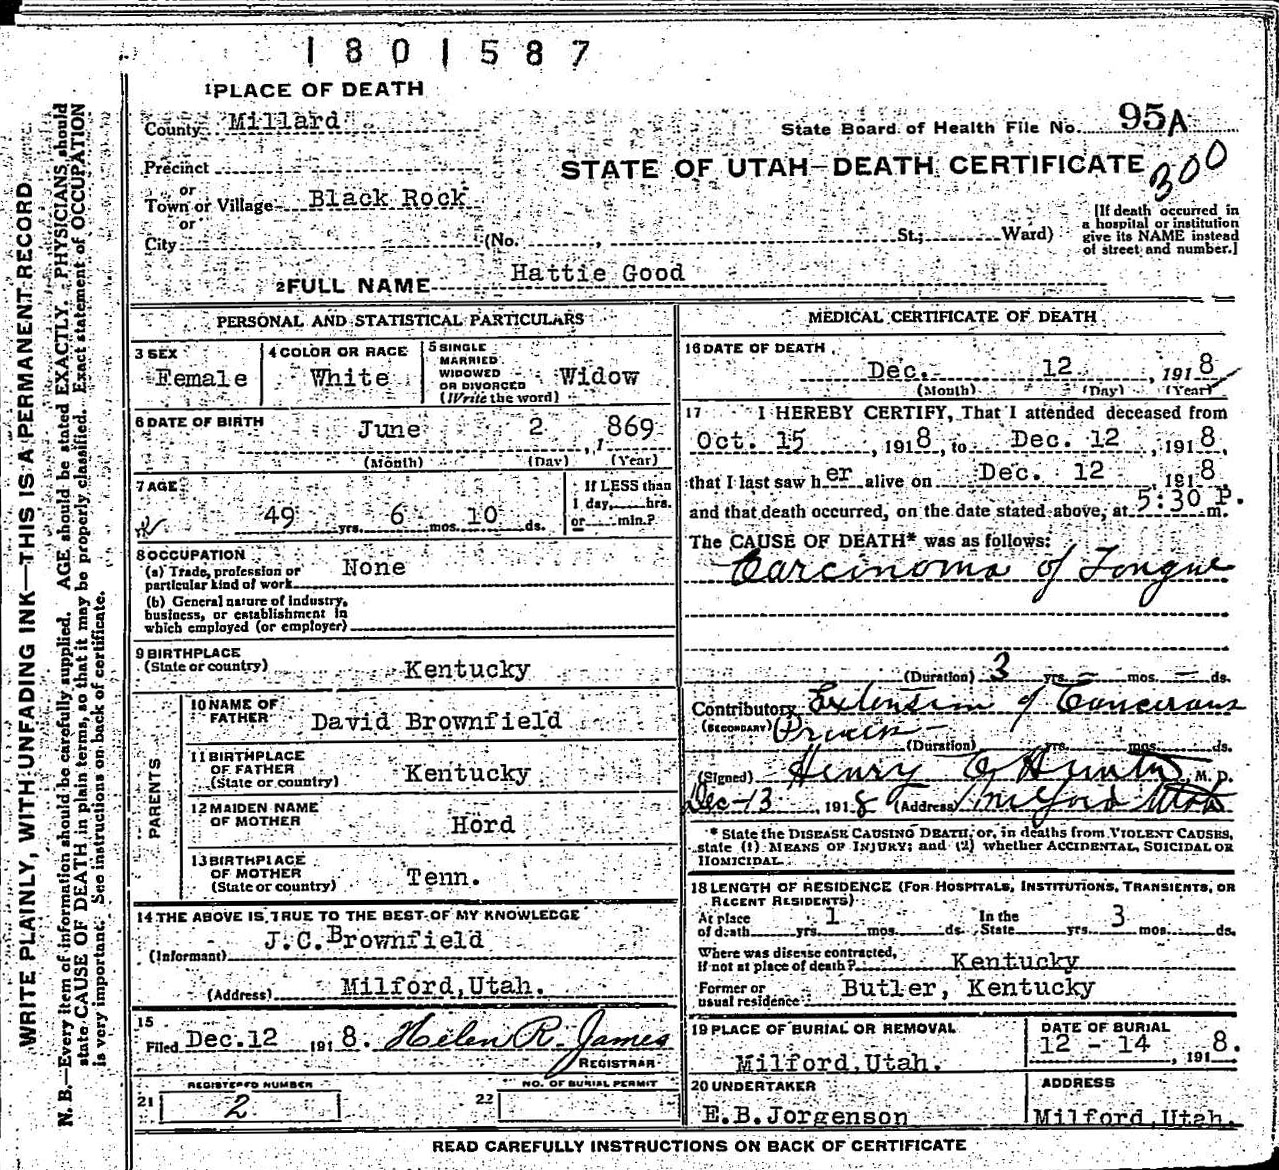 1801587
1PLACE OF DEATH
County Millard
State Board of Health File No. 95A
Precinct
STATE OF UTAH—DEATH CERTIFICATE
300
or
Town or Village Black Rock
or
City (No. , St.; Ward)
[If death occurred in
a hospital or institution
give its NAME instead
of street and number.]
2FULL NAME Hattie Good
PERSONAL AND STATISTICAL PARTICULARS
3 SEX
Female
4 COLOR OR RACE
White
5 SINGLE
MARRIED
WIDOWED
OR DIVORCED
(Write the word)
Widow
6 DATE OF BIRTH
June 2, 1869
(Month) (Day) (Year)
7 AGE
49 yrs. 6 mos. 10 ds.
If LESS than
1 day, hrs.
or min.?
8 OCCUPATION
(a) Trade, profession or
particular kind of work None
(b) General nature of industry,
business, or establishment in
which employed (or employer)
9 BIRTHPLACE
(State or country) Kentucky
PARENTS
10 NAME OF
FATHER David Brownfield
11 BIRTHPLACE
OF FATHER
(State or country) Kentucky
12 MAIDEN NAME
OF MOTHER Hord
13 BIRTHPLACE
OF MOTHER
(State or country) Tenn.
14 THE ABOVE IS TRUE TO THE BEST OF MY KNOWLEDGE
(Informant) J.C.Brownfield
(Address) Milford,Utah.
15
Filed Dec.12 1918. Helen R. James
REGISTRAR
REGISTERED NUMBER
21 2
NO. OF BURIAL PERMIT
22
MEDICAL CERTIFICATE OF DEATH
16 DATE OF DEATH
Dec. 12, 1918
(Month) (Day) (Year)
17 I HEREBY CERTIFY, That I attended deceased from
Oct. 15, 1918, to Dec. 12, 1918,
that I last saw her alive on Dec. 12, 1918,
and that death occurred, on the date stated above, at 5:30 P. m.
The CAUSE OF DEATH* was as follows:
Carcinoma of Tongue
(Duration) 3 yrs. – mos. – ds.
Contributory Extension of Cancerous
(SECONDARY) Process
(Duration) yrs. mos. ds.
(Signed) Henry C Hunter, M. D.
Dec-13 1918 (Address) Milford Utah
* State the DISEASE CAUSING DEATH, or, in deaths from VIOLENT CAUSES,
state (1) MEANS OF INJURY; and (2) whether ACCIDENTAL, SUICIDAL OR
HOMICIDAL.
18 LENGTH OF RESIDENCE (FOR HOSPITALS, INSTITUTIONS, TRANSIENTS, OR
RECENT RESIDENTS)
At place
of death 1 yrs. mos. ds.
In the
State yrs. 3 mos. ds.
Where was disease contracted,
if not at place of death? Kentucky
Former or
usual residence Butler, Kentucky
19 PLACE OF BURIAL OR REMOVAL
Milford,Utah.
DATE OF BURIAL
12 - 14, 1918.
20 UNDERTAKER
E.B.Jorgenson
ADDRESS
Milford,Utah.
READ CAREFULLY INSTRUCTIONS ON BACK OF CERTIFICATE
WRITE PLAINLY, WITH UNFADING INK—THIS IS A PERMANENT RECORD
N. B.—Every item of information should be carefully supplied. AGE should be stated EXACTLY. PHYSICIANS should
state CAUSE OF DEATH in plain terms, so that it may be properly classified. Exact statement of OCCUPATION
is very important. See instructions on back of certificate.